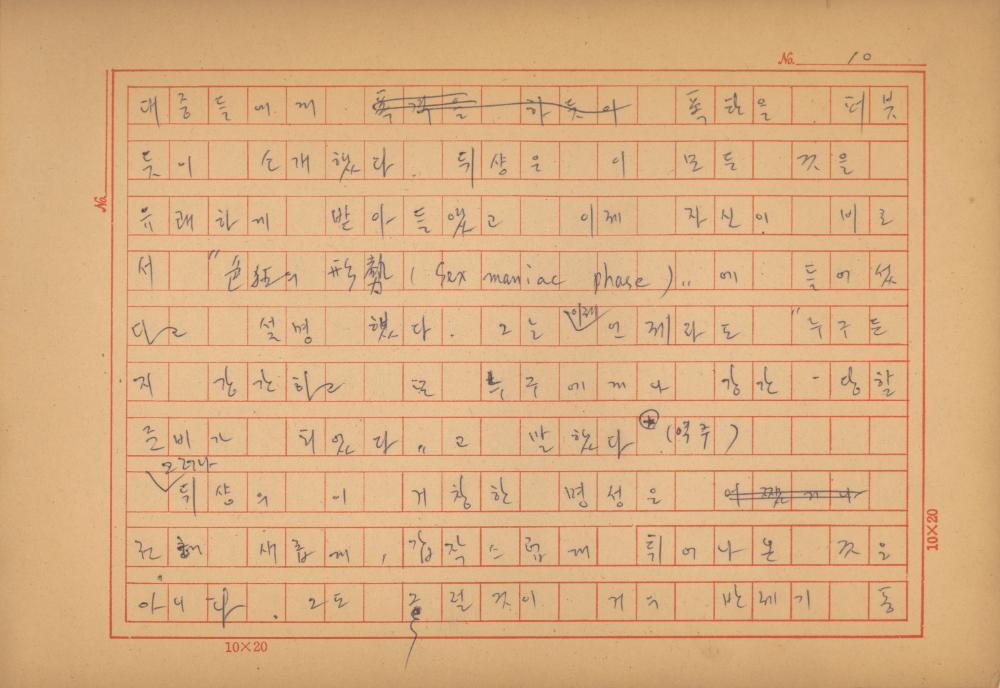 No. 10
대중들에게 폭격을 하듯이 폭탄을 퍼붓
듯이 소개했다. 뒤샹은 이 모든 것을
유쾌하게 받아들였고 이제 자신이 비로
서 "色狂의 形勢 (Sex maniac phase)"에 들어섰
다고 설명했다. 그는 이제 언제라도 "누구든
지 강간하고 또 누구에게나 강간 당할
준비가 되었다"고 말했다 * (역주)
그러나
뒤샹의 이 거창한 명성은 어쨌거나
전혀 새롭게, 갑작스럽게 튀어나온 것은
아니다. 그도 그럴 것이 거의 반세기 동
No.
10×20
10×20